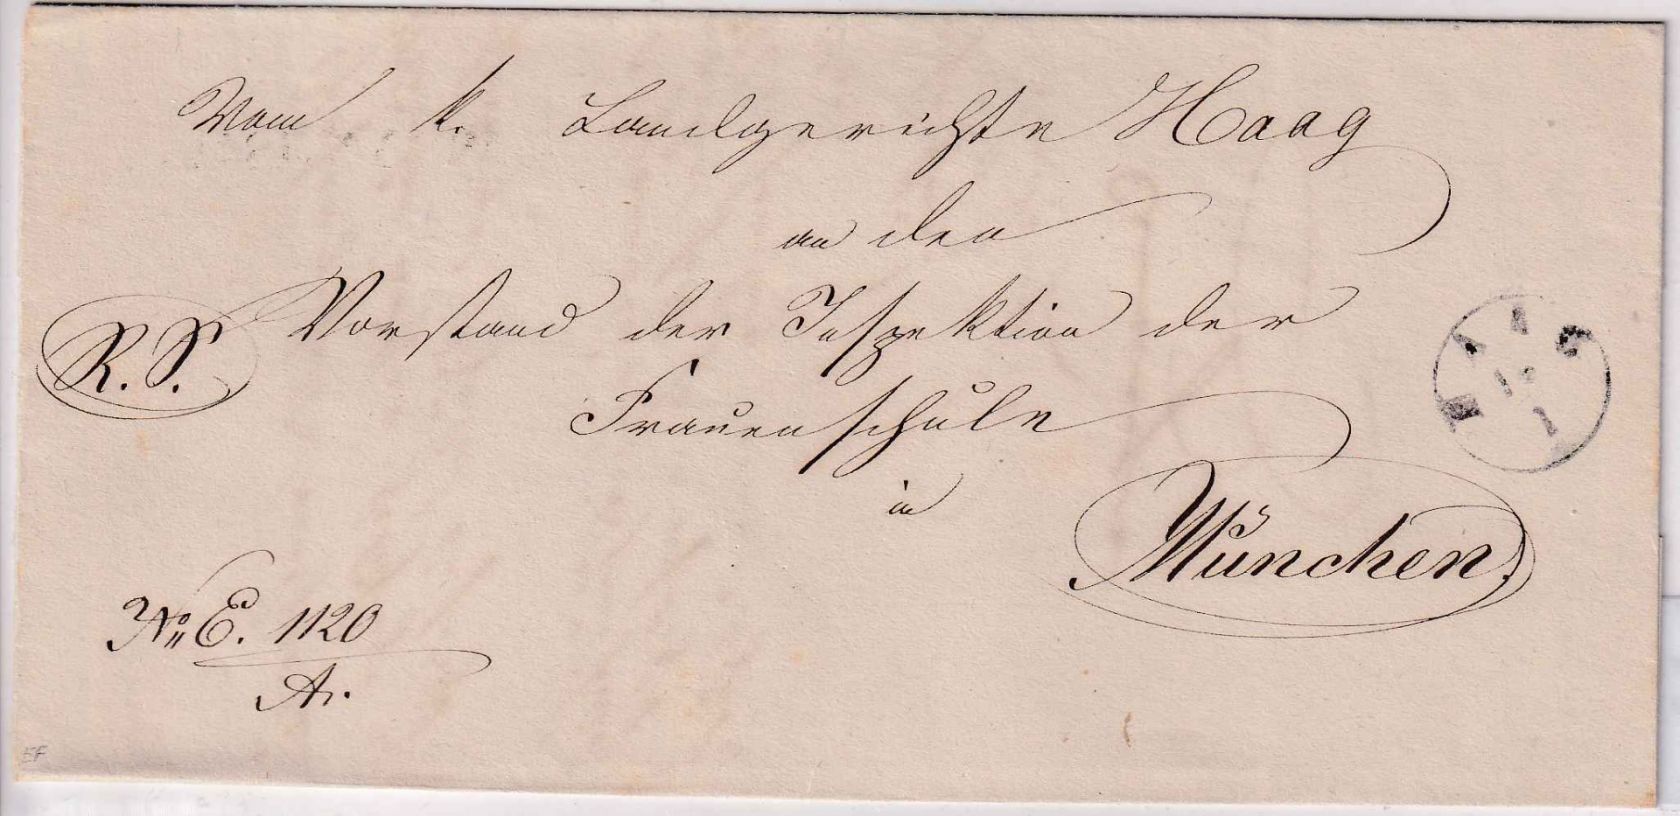 Vom k. Landgerichte Haag
an den
R. S. Vorstand der Inspektion der
Frauenschule
in
München.
HAAG
1
No. E. 1120
A.
EF